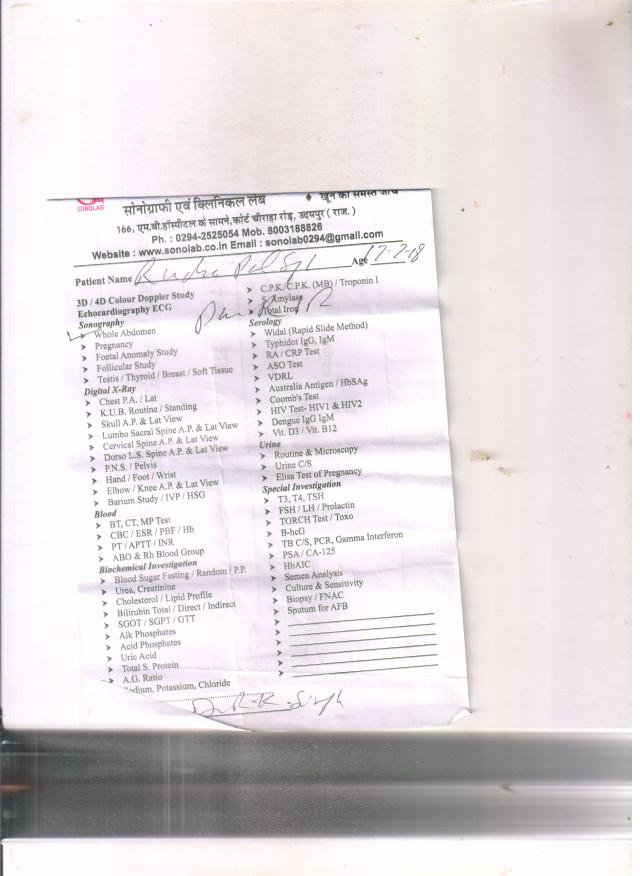 SONOLAB
सोनोग्राफी एवं क्लिनिकल लेब
♦ खून की समस्त जांच
166, एम.बी.हॉस्पीटल के सामने,कोर्ट चौराहा रोड़, उदयपुर ( राज. )
Ph. : 0294-2525054 Mob. 8003188826
Website : www.sonolab.co.in Email : sonolab0294@gmail.com
Patient Name Rudra Pal
Age 17-7-18
3D / 4D Colour Doppler Study
Echocardiography ECG
Sonography
➤ Whole Abdomen
➤ Pregnancy
➤ Foetal Anomaly Study
➤ Follicular Study
➤ Testis / Thyroid / Breast / Soft Tissue
Digital X-Ray
➤ Chest P.A. / Lat
➤ K.U.B. Routine / Standing
➤ Skull A.P. & Lat View
➤ Lumbo Sacral Spine A.P. & Lat View
➤ Cervical Spine A.P. & Lat View
➤ Dorso L.S. Spine A.P. & Lat View
➤ P.N.S. / Pelvis
➤ Hand / Foot / Wrist
➤ Elbow / Knee A.P. & Lat View
➤ Barium Study / IVP / HSG
Blood
➤ BT, CT, MP Test
➤ CBC / ESR / PBF / Hb
➤ PT / APTT / INR
➤ ABO & Rh Blood Group
Biochemical Investigation
➤ Blood Sugar Fasting / Random / P.P.
➤ Urea, Creatinine
➤ Cholesterol / Lipid Profile
➤ Bilirubin Total / Direct / Indirect
➤ SGOT / SGPT / GTT
➤ Alk Phosphates
➤ Acid Phosphates
➤ Uric Acid
➤ Total S. Protein
➤ A.G. Ratio
Sodium, Potassium, Chloride
➤ C.P.K./C.P.K. (MB) / Troponin I
➤ S. Amylase
➤ Total Iron
Serology
➤ Widal (Rapid Slide Method)
➤ Typhidot IgG, IgM
➤ RA / CRP Test
➤ ASO Test
➤ VDRL
➤ Australia Antigen / HbSAg
➤ Coomb's Test
➤ HIV Test- HIV1 & HIV2
➤ Dengue IgG IgM
➤ Vit. D3 / Vit. B12
Urine
➤ Routine & Microscopy
➤ Urine C/S
➤ Elisa Test of Pregnancy
Special Investigation
➤ T3, T4, TSH
➤ FSH / LH / Prolactin
➤ TORCH Test / Toxo
➤ B-hcG
➤ TB C/S, PCR, Gamma Interferon
➤ PSA / CA-125
➤ HbAIC
➤ Semen Analysis
➤ Culture & Sensitivity
➤ Biopsy / FNAC
➤ Sputum for AFB
Dr R.K. Singh